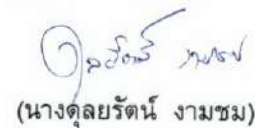 (นางดุลยรัตน์ งามชม)